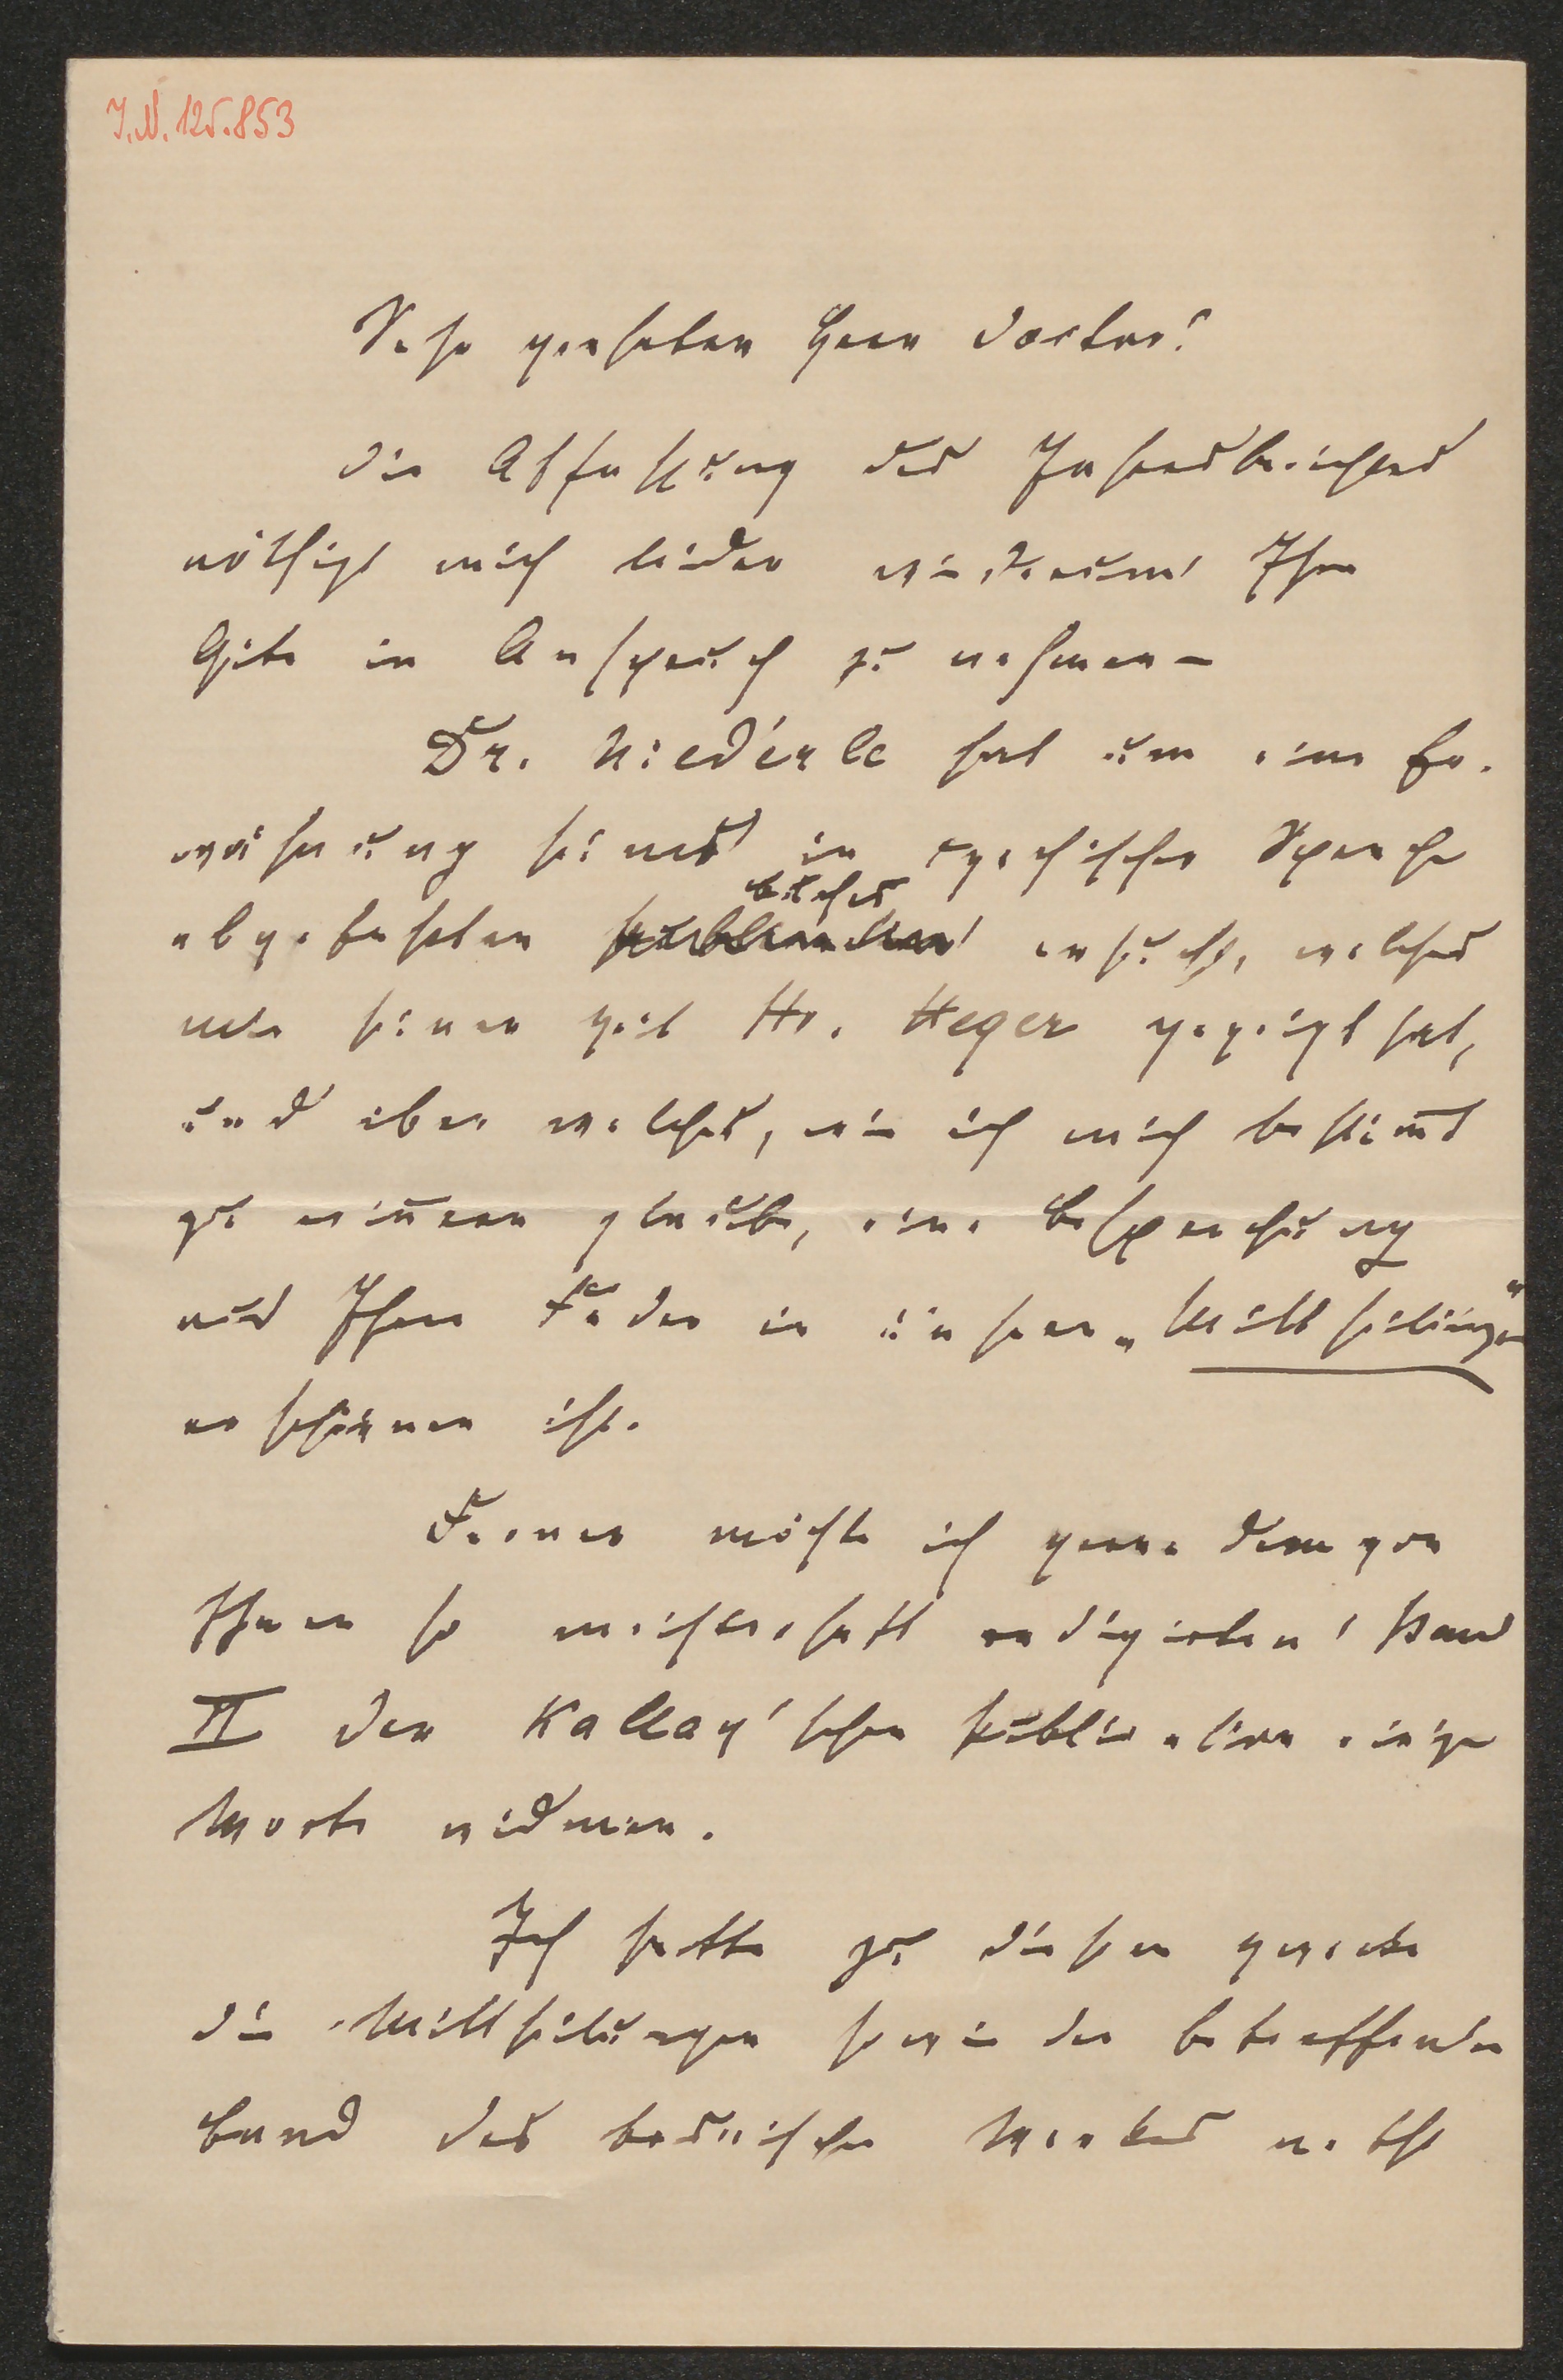 I.N. 125.853
Sehr geehrter Herr Doctor!
Die Abfassung des Jahresberichtes
nöthigt mich leider wiederum Ihre
Güte in Anspruch zu nehmen –
Dr. Niederle hat um eine Er-
wähnung seines in czechischer Sprache
Buches
abgefassten ersucht, welches
mir seiner Zeit Hr. Heger gezeigt hat,
und über welches, wie ich mich bestim̅t
zu erin̅ern glaube, eine Besprechung
aus Ihrer Feder in unseren „Mittheilungen"
erschienen ist.
Ferner möchte ich gerne dem von
Ihnen so meisterhaft redigirten Band
II der Kallay'schen Publication einige
Worte widmen.
Ich hätte zu diesem Zwecke
die Mittheilungen sowie den betreffenden
Band des bosnischen Werkes nebst